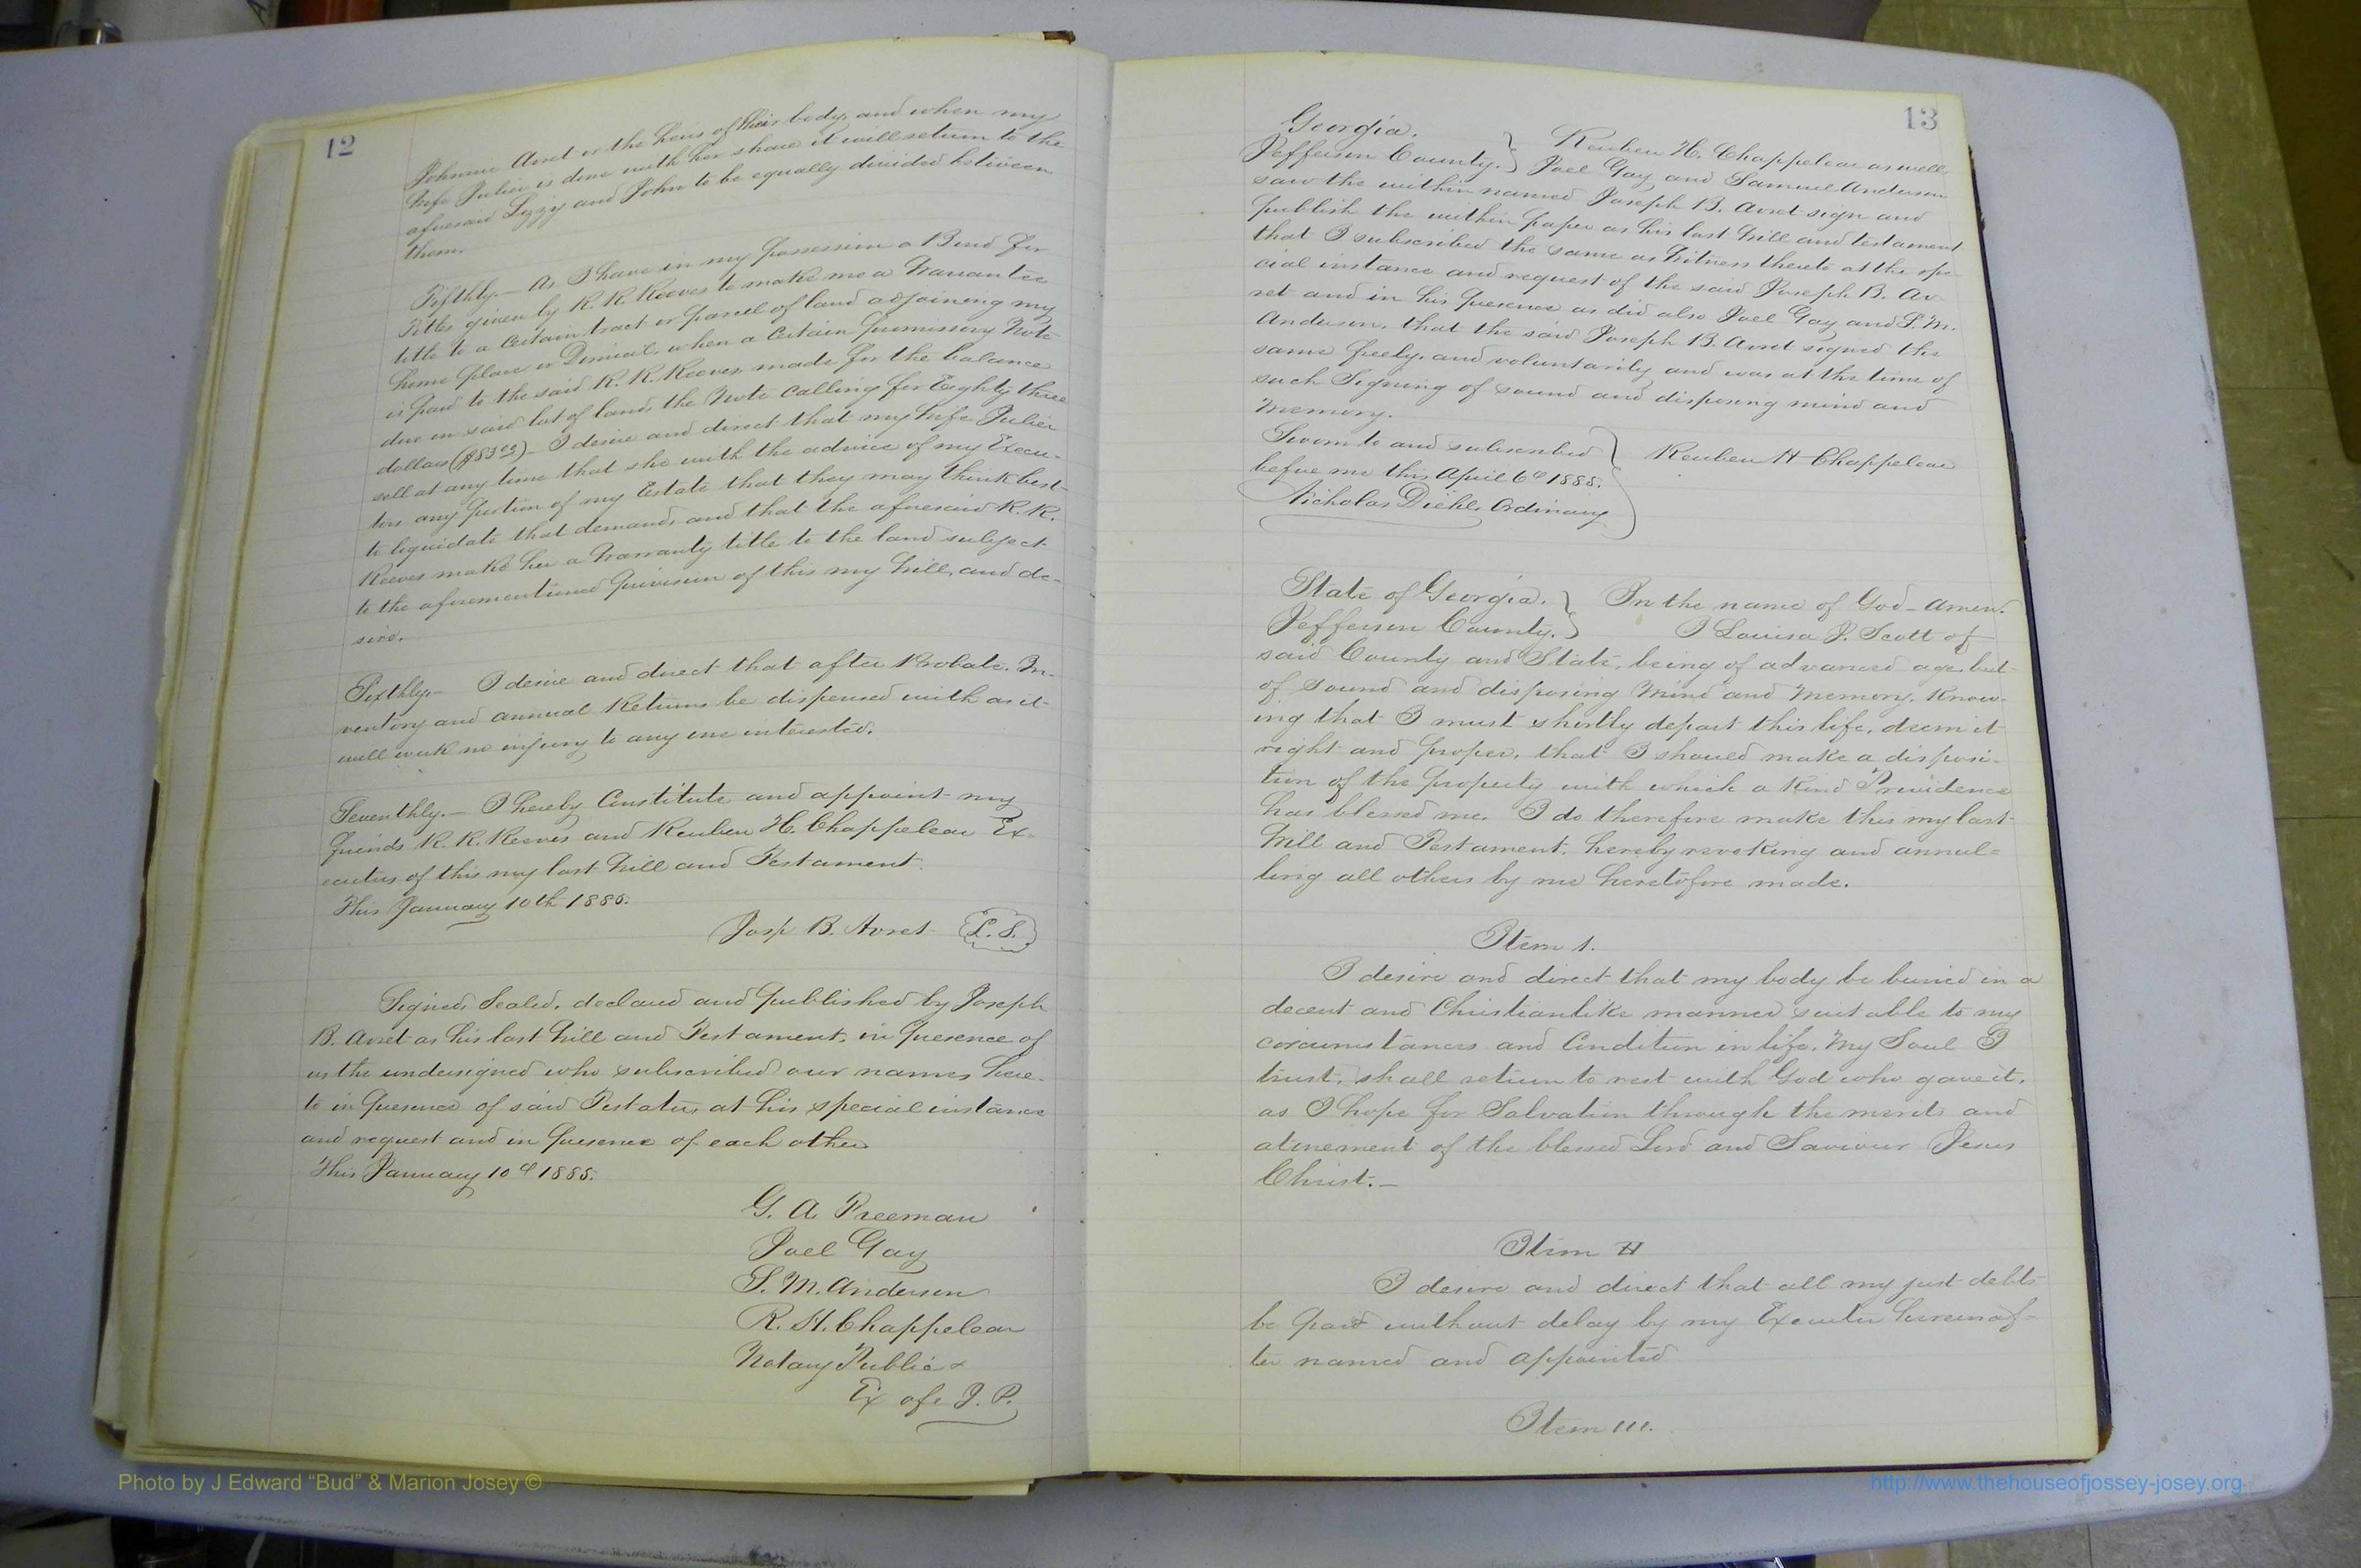 12
Johnnie Avret or the heirs of their body, and when my
Wife Julier is done with her share it will return to the
aforesaid Lizzy and John to be equally divided between
them.
Fifthly.— As I have in my possession a Bond for
Titles given by R. R. Reeves to make me a Warrantee
title to a certain tract or parcel of land adjoining my
home place or Domicil, when a certain promissory Note
is paid to the said R. R. Reeves, made for the balance
due on said lot of land, the Note calling for Eighty three
dollars ($83.00)— I desire and direct that my Wife Julier
sell at any time that she with the advice of my Execu-
tors any portion of my Estate that they may think best
to liquidate that demand, and that the aforesaid R. R.
Reeves make her a Warranty title to the land subject
to the aforementioned provision of this my Will, and de-
sire.
Sixthly.— I desire and direct that after Probate. In-
ventory and annual Returns be dispensed with as it
will work no injury to any one interested.
Seventhly.— I hereby Constitute and appoint my
friends R. R. Reeves and Reuben H. Chappelear Ex-
ecutors of this my last Will and Testament.
This January 10th 1885.
Josp B. Avret L. S.
Signed, Sealed, declared and published by Joseph
B. Avret as his last Will and Testament, in presence of
us the undersigned who subscribed our names here-
to in presence of said Testator, at his special instance
and request and in presence of each other
This January 10th 1885.
G. A. Freeman
Joel Gay
S. M. Anderson
R. H. Chappelear
Notary Public &
Ex ofc J. P.
13
Georgia.
Jefferson County. } Reuben H. Chappelear as well
Joel Gay and Samuel Anderson
saw the within named Joseph B. Avret sign and
publish the within paper as his last Will and testament
that I subscribed the same as Witness thereto at the spe-
cial instance and request of the said Joseph B. Av-
ret and in his presence as did also Joel Gay and S. M.
Anderson. that the said Joseph B. Avret signed the
same freely, and voluntarily and was at the time of
such Signing of sound and disposing mind and
Memory.
Sworn to and subscribed } Reuben H Chappelear
before me this April 6th 1885.
Nicholas Diehl, Ordinary
State of Georgia. } In the name of God— Amen.
Jefferson County. } I Louisa J. Scott of
said County and State, being of advanced age, but
of sound and disposing Mind and Memory, Know-
ing that I must shortly depart this life, deem it
right and proper, that I should make a disposi-
tion of the property with which a Kind Providence
has blessed me. I do therefore make this my last
Will and Testament, hereby revoking and annul=
ling all others by me heretofore made.
Item 1.
I desire and direct that my body be buried in a
decent and Christianlike manner suitable to my
circumstances and Condition in life. My Soul I
trust, shall return to rest with God who gave it,
as I hope for Salvation through the merits and
atonement of the blessed Lord and Saviour Jesus
Christ.—
Item II
I desire and direct that all my just debts
be paid without delay by my Executor hereinaf-
ter named and appointed
Item III.
Photo by J Edward “Bud” & Marion Josey ©
http://www.thehouseofjossey-josey.org